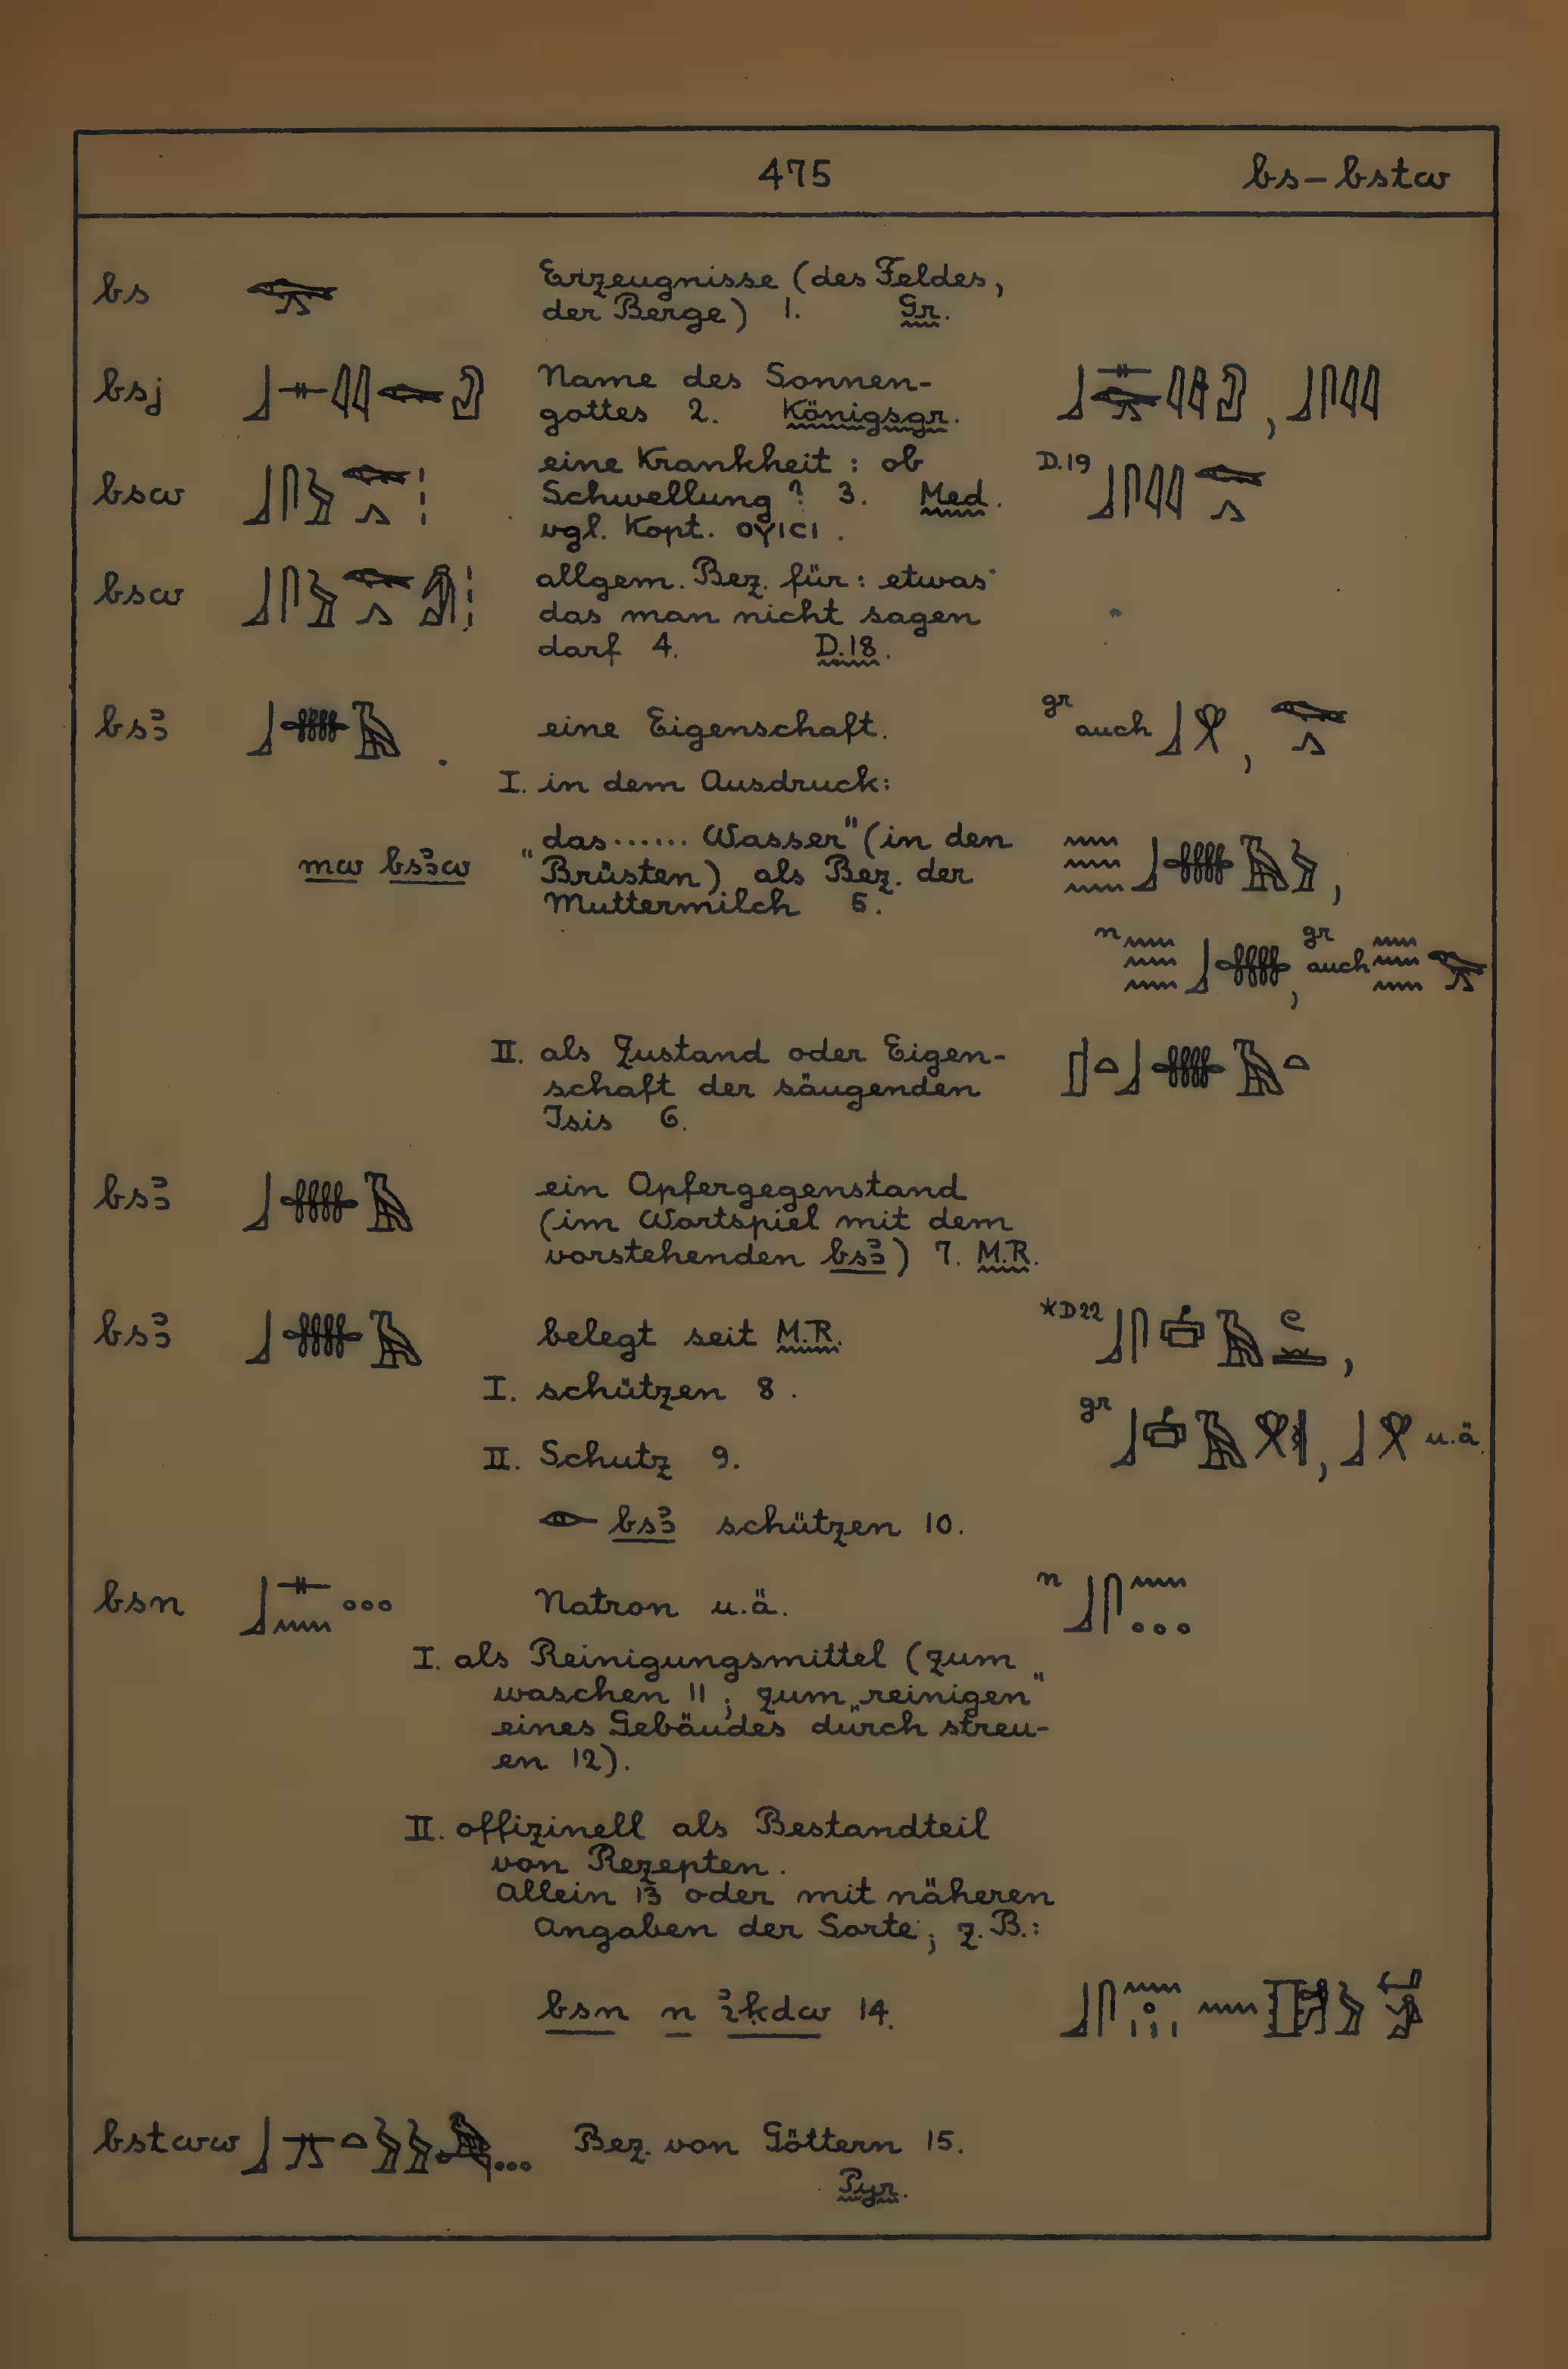 475 bs – bstw
bs Erzeugnisse (des Feldes,
der Berge) 1. Gr.
bsj Name des Sonnen-
gottes 2. Königsgr.
bsw eine Krankheit : ob D.19
Schwellung ? 3. Med.
vgl. Kopt. ⲟⲩⲓⲥⲓ .
bsw allgem. Bez. für : etwas
das man nicht sagen
darf 4. D.18.
bsꜣ eine Eigenschaft. gr auch ,
I. in dem Ausdruck:
mw bsꜣw „das...... Wasser" (in den
Brüsten) als Bez. der
Muttermilch 5.
n , gr auch
II. als Zustand oder Eigen-
schaft der säugenden
Isis 6.
bsꜣ ein Opfergegenstand
(im Wortspiel mit dem
vorstehenden bsꜣ) 7. M.R.
bsꜣ belegt seit M.R. *D22 ,
I. schützen 8 .
gr , u.ä.
II. Schutz 9.
bsꜣ schützen 10.
bsn Natron u.ä. n
I. als Reinigungsmittel (zum
waschen 11 ; zum „reinigen"
eines Gebäudes durch streu-
en 12).
II. offizinell als Bestandteil
von Rezepten.
Allein 13 oder mit näheren
Angaben der Sorte ; z.B.:
bsn n ꜣḳdw 14.
bstww Bez. von Göttern 15.
Pyr.